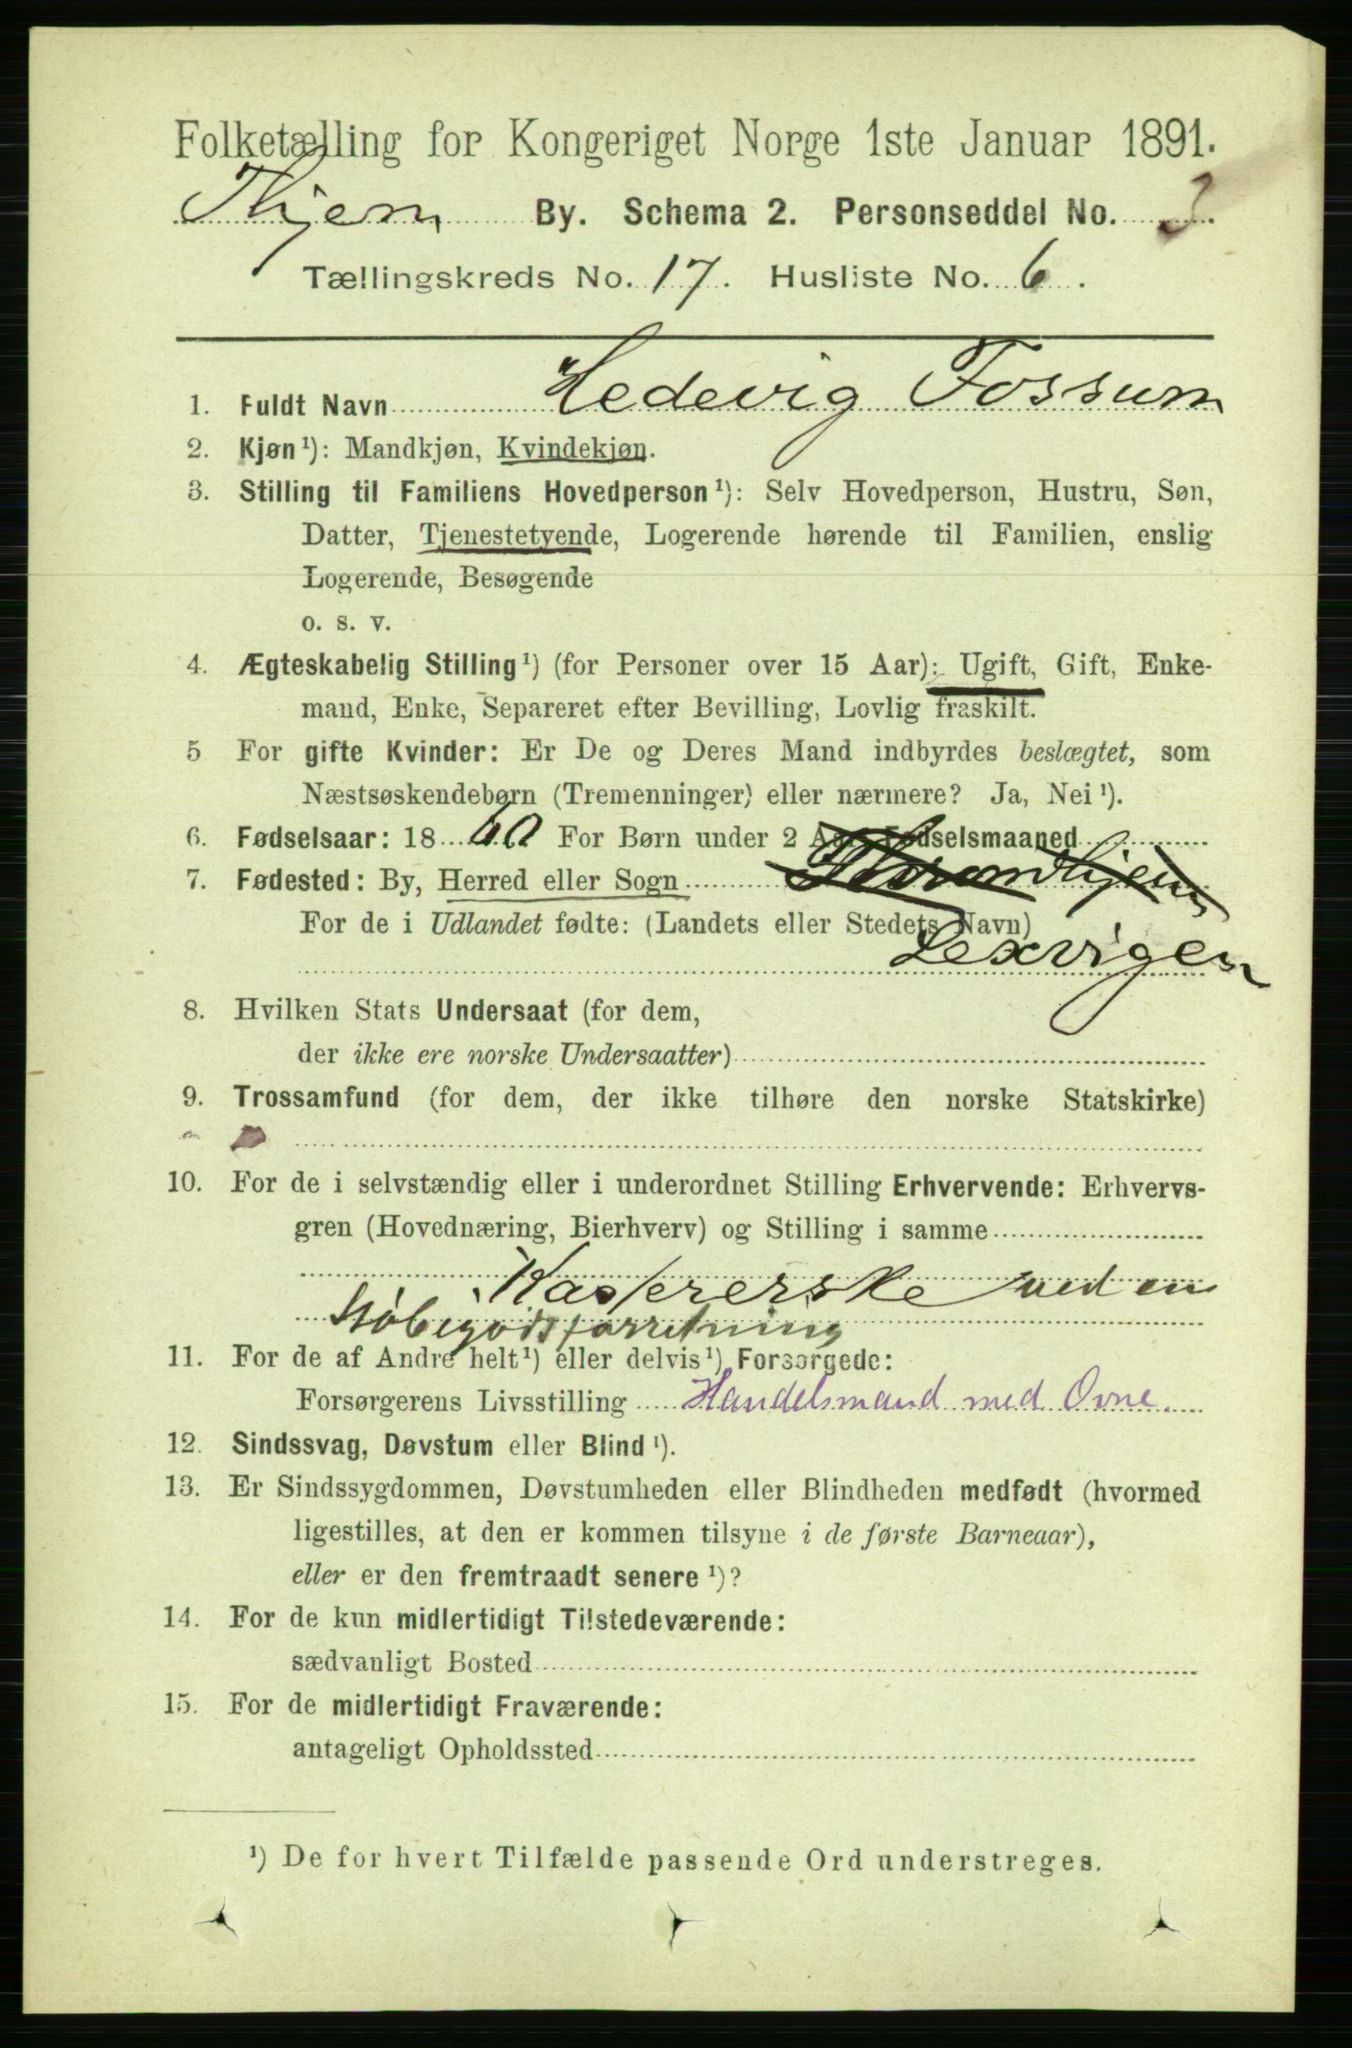 Folketælling for Kongeriget Norge 1ste Januar 1891.
Thjem By. Schema 2. Personseddel No. 3.
Tællingskreds No. 17. Husliste No. 6.
1. Fuldt Navn Hedevig Fossum
2. Kjøn¹): Mandkjøn, Kvindekjøn.
3. Stilling til Familiens Hovedperson¹): Selv Hovedperson, Hustru, Søn,
Datter, Tjenestetyende, Logerende hørende til Familien, enslig
Logerende, Besøgende
o. s. v.
4. Ægteskabelig Stilling¹) (for Personer over 15 Aar): Ugift, Gift, Enke-
mand, Enke, Separeret efter Bevilling, Lovlig fraskilt.
5 For gifte Kvinder: Er De og Deres Mand indbyrdes beslægtet, som
Næstsøskendebørn (Tremenninger) eller nærmere? Ja, Nei¹).
6. Fødselsaar: 1860 For Børn under 2 Aar Fødselsmaaned
7. Fødested: By, Herred eller Sogn Throndhjem
For de i Udlandet fødte: (Landets eller Stedets Navn)
Lexvigen
8. Hvilken Stats Undersaat (for dem,
der ikke ere norske Undersaatter)
9. Trossamfund (for dem, der ikke tilhøre den norske Statskirke)
10. For de i selvstændig eller i underordnet Stilling Erhvervende: Erhvervs-
gren (Hovednæring, Bierhverv) og Stilling i samme
Kasererske ved en
Støbegodsforretning
11. For de af Andre helt¹) eller delvis¹) Forsørgede:
Forsørgerens Livsstilling Handelsmand med Ovne.
12. Sindssvag, Døvstum eller Blind¹).
13. Er Sindssygdommen, Døvstumheden eller Blindheden medfødt (hvormed
ligestilles, at den er kommen tilsyne i de første Barneaar),
eller er den fremtraadt senere¹)?
14. For de kun midlertidigt Tilstedeværende:
sædvanligt Bosted
15. For de midlertidigt Fraværende:
antageligt Opholdssted
¹) De for hvert Tilfælde passende Ord understreges.